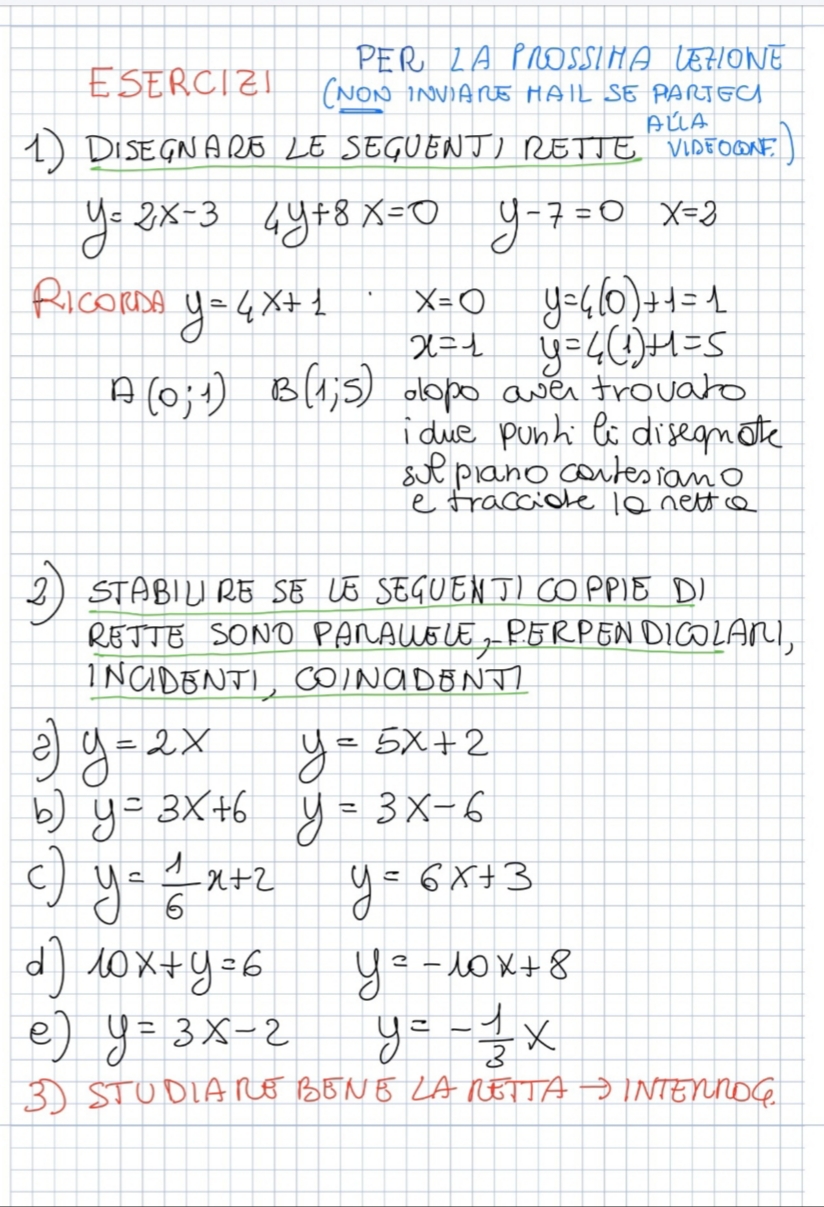 ESERCIZI
PER LA PROSSIMA LEZIONE
(NON INVIARE MAIL SE PARTECI
ALLA
VIDEOCONF.)
1) DISEGNARE LE SEGUENTI RETTE
y=2x-3 4y+8x=0 y-7=0 x=2
RICORDA y=4x+1 . x=0 y=4(0)+1=1
x=1 y=4(1)+1=5
A(0;1) B(1;5) dopo aver trovato
i due punti li disegnate
sul piano cartesiano
e tracciate la retta
2) STABILIRE SE LE SEGUENTI COPPIE DI
RETTE SONO PARALLELE, PERPENDICOLARI,
INCIDENTI, COINCIDENTI
a) y=2x y=5x+2
b) y=3x+6 y=3x-6
c) y=1/6x+2 y=6x+3
d) 10x+y=6 y=-10x+8
e) y=3x-2 y=-1/3x
3) STUDIARE BENE LA RETTA → INTERROG.